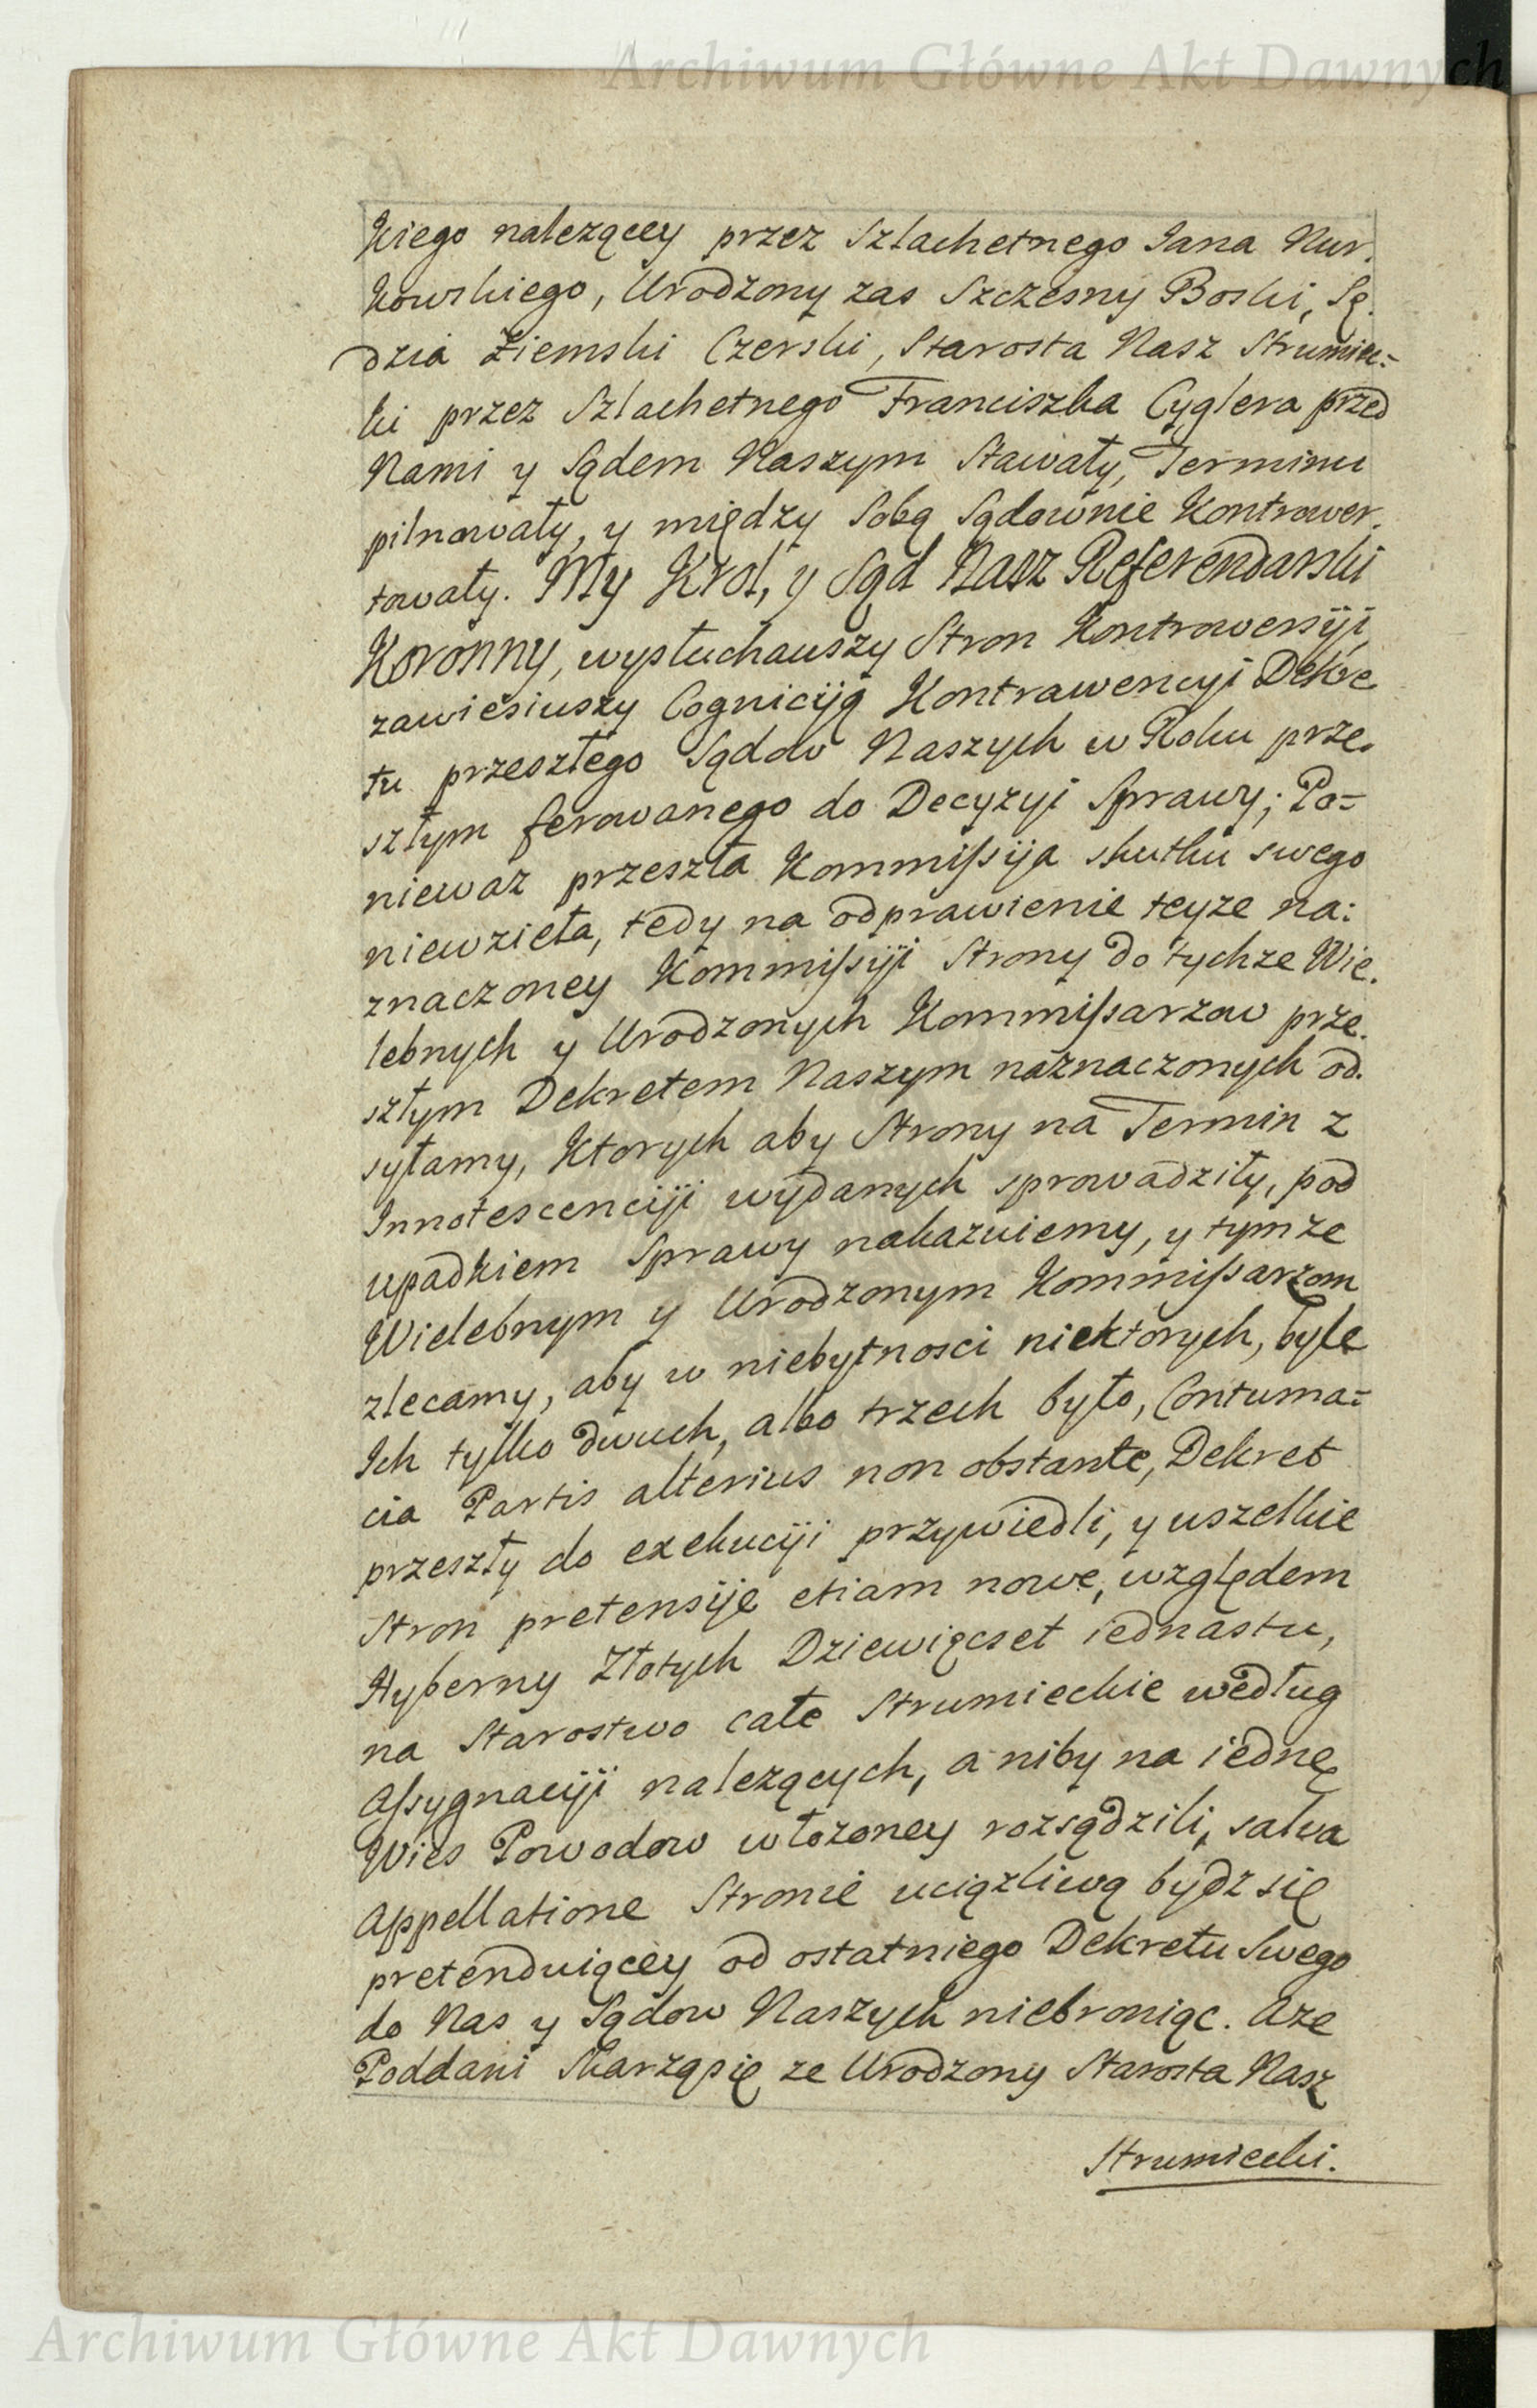 Archiwum Główne Akt Dawnych
kiego nalezącey przez Szlachetnego Jana Nur.
kowskiego, Urodzony zas Szczesny Boski, Sę.
dzia Ziemski Czerski, Starosta Nasz Strumiec=
ki przez Szlachetnego Franciszka Cyglera przed
Nami y Sądem Naszym Stawały, Terminu
pilnowały, y między Sobą Sądownie Kontrower.
towały. My Krol, y Sąd Nasz Referendarski
Koronny, wysłuchawszy Stron Kontrowersyji,
zawiesiwszy Cognicyją Kontrawencyi Dekre
tu przeszłego Sądow Naszych w Roku prze.
szłym ferowanego do Decyzyi Sprawy; Po=
niewaz przeszła Kommissyja skutku swego
niewzieła, tedy na odprawienie teyze na:
znaczoney Kommissyji Strony do tychze Wie.
lebnych y Urodzonych Kommissarzow prze.
szłym Dekretem Naszym naznaczonych od.
syłamy, Ktorych aby Strony na Termin z
Innotescencyji wydanych sprowadziły, pod
upadkiem Sprawy nakazuiemy, y tymze
Wielebnym y Urodzonym Kommissarzom
zlecamy, aby w niebytnosci niektorych, byle
Ich tylko dwuch, albo trzech było, Contuma=
cia Partis alterius non obstante, Dekret
przeszły do exekucyji przywiedli, y wszelkie
Stron pretensyje etiam nowe, względem
Hyberny Złotych Dziewięcset iednastu,
na Starostwo całe Strumieckie według
Assygnacyji nalezących, a niby na iednę
Wies Powodow włozoney rozsądzili, salva
Appellatione Stronie uciązliwą bydz się
pretenduiącey od ostatniego Dekretu Swego
do Nas y Sądow Naszych niebroniąc. Aze
Poddani Skarząsię ze Urodzony Starosta Nasz
Strumiecki.
Archiwum Główne Akt Dawnych